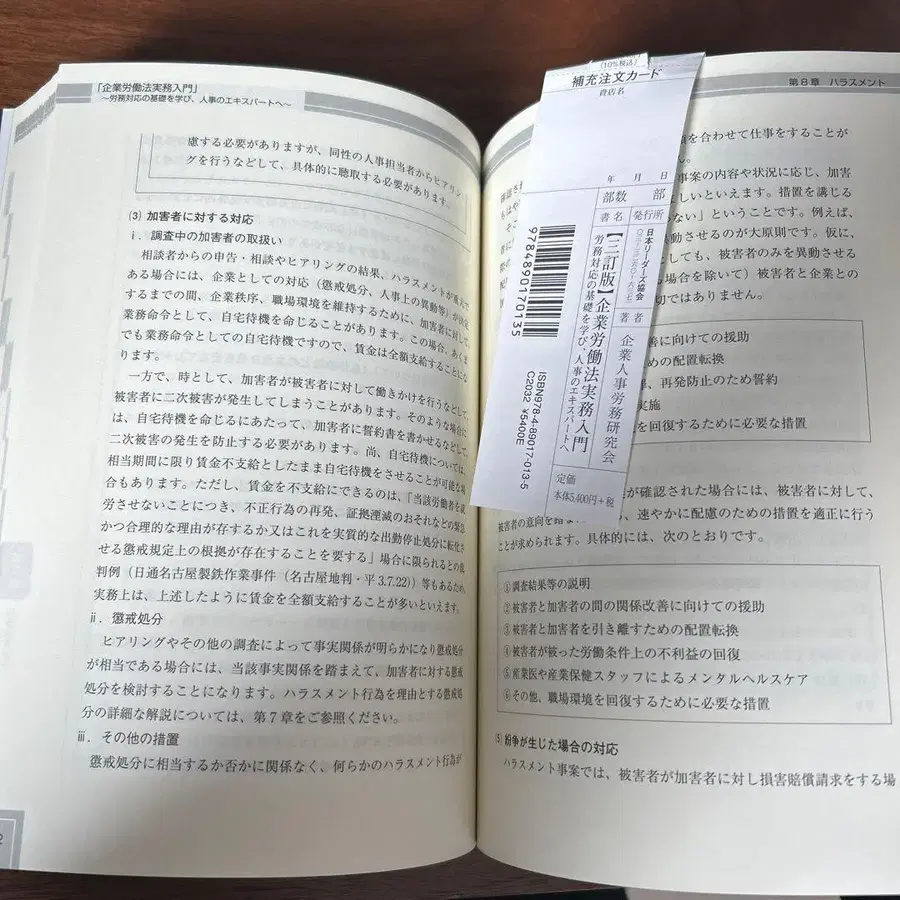 「企業労働法実務入門」
～労務対応の基礎を学び、人事のエキスパートへ～
慮する必要がありますが、同性の人事担当者からヒアリン
グを行うなどして、具体的に聴取する必要があります。
(3) 加害者に対する対応
ⅰ．調査中の加害者の取扱い
相談者からの申告・相談やヒアリングの結果、ハラスメントが重大で
ある場合には、企業としての対応（懲戒処分、人事上の異動等）が決定
するまでの間、企業秩序、職場環境を維持するために、加害者に対して、
業務命令として、自宅待機を命じることがあります。この場合、あくま
でも業務命令としての自宅待機ですので、賃金は全額支給することにな
ります。
一方で、時として、加害者が被害者に対して働きかけを行うなどして、
被害者に二次被害が発生してしまうことがあります。そのような場合に
は、自宅待機を命じるにあたって、加害者に誓約書を書かせるなどして、
二次被害の発生を防止する必要があります。尚、自宅待機については、
相当期間に限り賃金不支給としたまま自宅待機をさせることが可能な場
合もあります。ただし、賃金を不支給にできるのは、「当該労働者を就
労させないことにつき、不正行為の再発、証拠湮滅のおそれなどの緊急
かつ合理的な理由が存するか又はこれを実質的な出勤停止処分に転化さ
せる懲戒規定上の根拠が存在することを要する」場合に限られるとの裁
判例（日通名古屋製鉄作業事件（名古屋地判・平3.7.22））等もあるため、
実務上は、上述したように賃金を全額支給することが多いといえます。
ⅱ．懲戒処分
ヒアリングやその他の調査によって事実関係が明らかになり懲戒処分
が相当である場合には、当該事実関係を踏まえて、加害者に対する懲戒
処分を検討することになります。ハラスメント行為を理由とする懲戒処
分の詳細な解説については、第7章をご参照ください。
ⅲ．その他の措置
懲戒処分に相当するか否かに関係なく、何らかのハラスメント行為が
(10%税込)
補充注文カード
貴店名
年 月 日
部数 部
書名
発行所
日本リーダーズ協会
著者
企業人事労務研究会
【三訂版】企業労働法実務入門
労務対応の基礎を学び、人事のエキスパートへ
9784890170135
ISBN978-4-89017-013-5
C2032 ¥5400E
定価
本体5,400円+税
第8章 ハラスメント
を合わせて仕事をすることが
事案の内容や状況に応じ、加害
しいといえます。措置を講じる
ない」ということです。例えば、
動させるのが大原則です。仮に、
としても、被害者のみを異動させる
場合を除いて）被害者と企業との
切ではありません。
善に向けての援助
めの配置転換
、再発防止のため誓約
実施
を回復するために必要な措置
が確認された場合には、被害者に対して、
被害者の意向を踏ま
、速やかに配慮のための措置を適正に行う
ことが求められます。具体的には、次のとおりです。
①調査結果等の説明
②被害者と加害者の間の関係改善に向けての援助
③被害者と加害者を引き離すための配置転換
④被害者が被った労働条件上の不利益の回復
⑤産業医や産業保健スタッフによるメンタルヘルスケア
⑥その他、職場環境を回復するために必要な措置
(5) 紛争が生じた場合の対応
ハラスメント事案では、被害者が加害者に対し損害賠償請求をする場